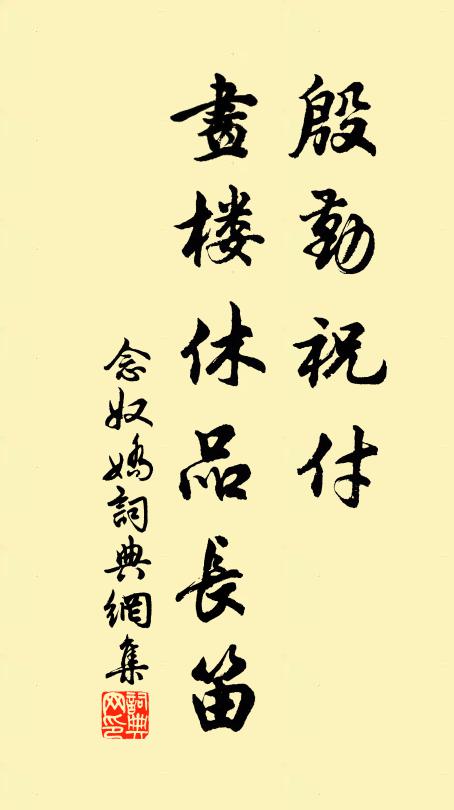 殷勤祝付
畫楼休品長笛
念奴嬌詞典網集
詞典網印